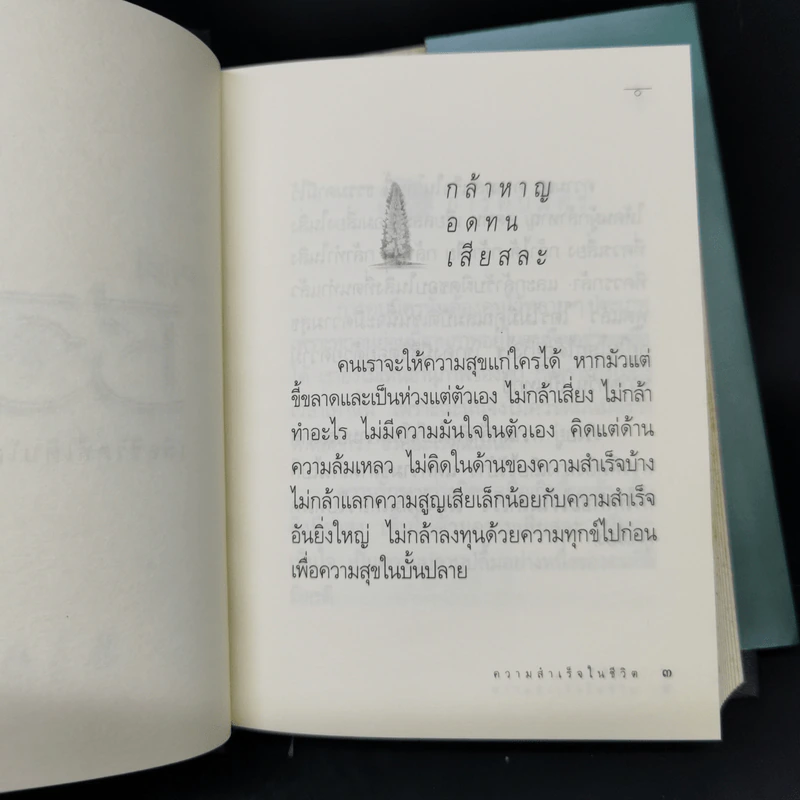 ๑
กล้าหาญ
อดทน
เสียสละ
คนเราจะให้ความสุขแก่ใครได้ หากมัวแต่
ขี้ขลาดและเป็นห่วงแต่ตัวเอง ไม่กล้าเสี่ยง ไม่กล้า
ทำอะไร ไม่มีความมั่นใจในตัวเอง คิดแต่ด้าน
ความล้มเหลว ไม่คิดในด้านของความสำเร็จบ้าง
ไม่กล้าแลกความสูญเสียเล็กน้อยกับความสำเร็จ
อันยิ่งใหญ่ ไม่กล้าลงทุนด้วยความทุกข์ไปก่อน
เพื่อความสุขในบั้นปลาย
ความสำเร็จในชีวิต ๓